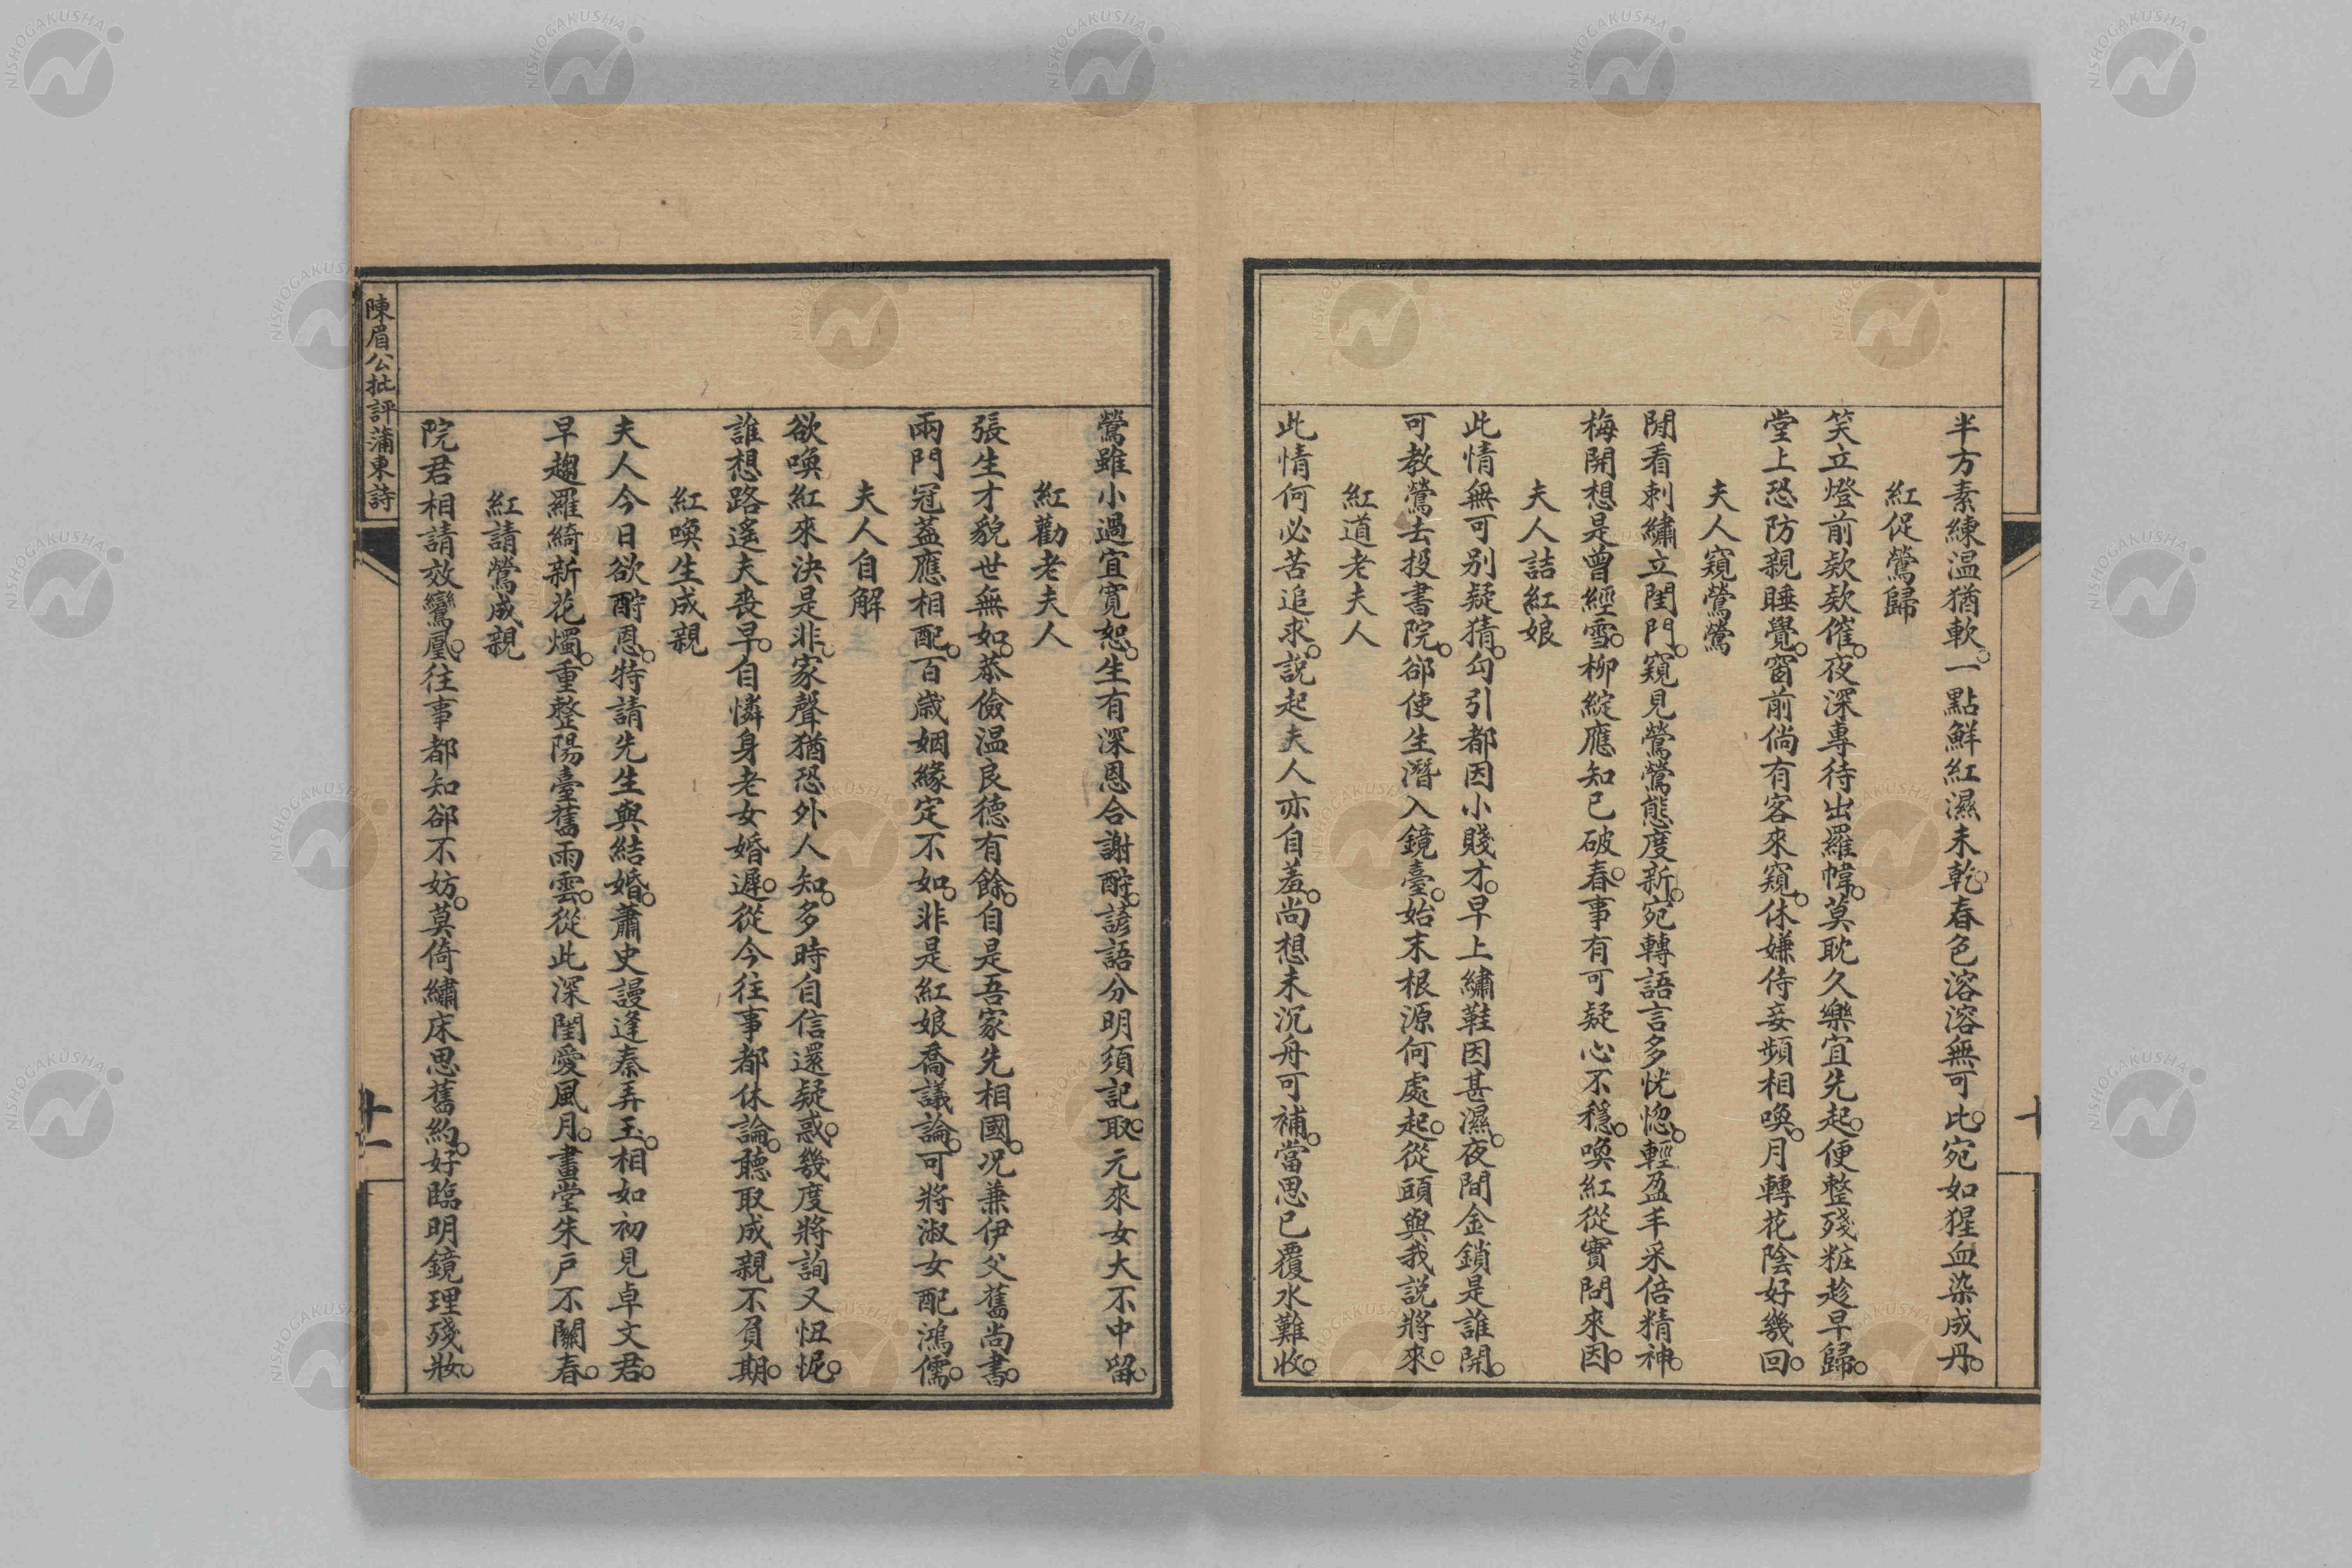 半方素練温猶軟。一點鮮紅濕未乾。春色溶溶無可比。宛如猩血染成丹。
紅促鶯歸
笑立燈前欵欵催。夜深專待出羅幃。莫耽久樂宜先起。便整殘粧趁早歸。
堂上恐防親睡覺。窗前倘有客來窺。休嫌侍妾頻相喚。月轉花陰好幾回。
夫人窺鶯鶯
閒看刺繡立閨門。窺見鶯鶯態度新。宛轉語言多恍惚。輕盈丰采倍精神。
梅開想是曾經雪。柳綻應知已破春。事有可疑心不穩。喚紅從實問來因。
夫人詰紅娘
此情無可别疑猜。勾引都因小賤才。早上繡鞋因甚濕。夜間金鎖是誰開。
可教鶯去投書院。郤使生潛入鏡臺。始末根源何處起。從頭與我説將來。
紅道老夫人
此情何必苦追求。説起夫人亦自羞。尚想未沉舟可補。當思已覆水難收。
十
鶯雖小過宜寬恕。生有深恩合謝酧。諺語分明須記取。元來女大不中留。
紅勸老夫人
張生才貌世無如。恭儉温良德有餘。自是吾家先相國。况兼伊父舊尚書。
兩門冠蓋應相配。百歲姻緣定不如。非是紅娘喬議論。可將淑女配鴻儒。
夫人自解
欲喚紅來決是非。家聲猶恐外人知。多時自信還疑惑。幾度將詢又忸怩。
誰想路遙夫喪早。自憐身老女婚遲。從今往事都休論。聽取成親不負期。
紅喚生成親
夫人今日欲酧恩。特請先生與結婚。蕭史謾逢秦弄玉。相如初見卓文君。
早趨羅綺新花燭。重整陽臺舊雨雲。從此深閨愛風月。畫堂朱戶不關春。
紅請鶯成親
院君相請效鸞凰。往事都知郤不妨。莫倚繡床思舊約。好臨明鏡理殘妝。
陳眉公批評蒲東詩
十一
NISHOGAKUSHA